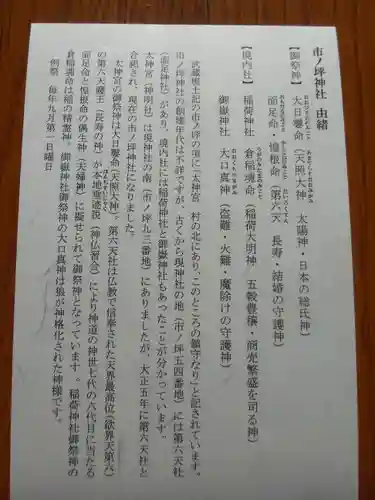 市ノ坪神社 由緒
【御祭神】
おおひるめのみこと
大日孁命（天照大神 太陽神・日本の総氏神）
面足命・惶根命（第六天 長寿・結婚の守護神）
【境内社】
稲荷神社 倉稲魂命（稲荷大明神 五穀豊穣・商売繁盛を司る神）
御嶽神社 大口真神（盗難・火難・魔除けの守護神）
武蔵風土記の市ノ坪の項に「大神宮 村の北にあり、このところの鎮守なり」と記されています。
市ノ坪神社の創建年代は不詳ですが、古くから現神社の地（市ノ坪五四番地）には第六天社
（面足神社）があり、境内社には稲荷神社と御嶽神社もあったことが分かっています。
大神宮（神明社）は現神社の南（市ノ坪九三番地）にありましたが、大正五年に第六天社と
合祀され、現在の市ノ坪神社になりました。
大神宮の御祭神は大日孁命（天照大神）。第六天社は仏教で信奉された天界最高位（欲界天第六）
の第六天魔王（長寿の神）が本地垂迹説（神仏習合）により神道の神世七代の六代目に当たる
面足命と惶根命の偶生神（夫婦神）に擬せられて御祭神となっています。稲荷神社御祭神の
倉稲魂命は稲の精霊神。御嶽神社御祭神の大口真神は狼が神格化された神様です。
例祭 毎年九月第一日曜日